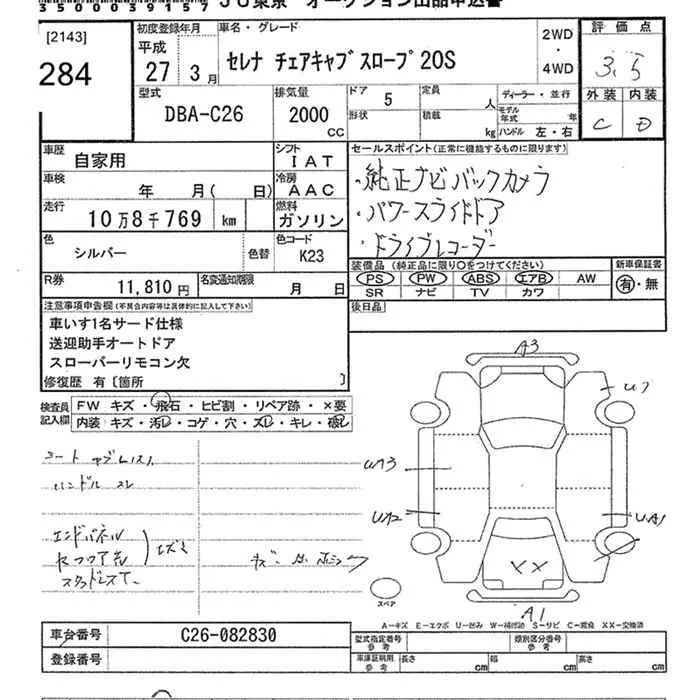 35000039157 JU東京 オークション出品申込書
[2143]
284
初度登録年月
平成
27年 3月
車名・グレード
セレナ チェアキャブスロープ20S
2WD
・
4WD
評価点
3.5
外装 内装
C D
型式
DBA-C26
排気量
2000
CC
ドア
5
形状
定員
人
積載
kg
ディーラー・並行
モデル年式 年
ハンドル 左・右
車歴
自家用
シフト
IAT
車検
年 月( 日)
冷房
AAC
走行
10万8千769 km
燃料
ガソリン
色
シルバー
色替
色コード
K23
R券
11,810円
名変通知期限
月 日
セールスポイント(正常に機能するものに限ります)
・純正ナビバックカメラ
・パワースライドドア
・ドライブレコーダー
装備品(純正品に限り○をつけてください)
PS PW ABS エアB AW
SR ナビ TV カワ
新車保証書
有・無
後日品
注意事項申告欄(不具合内容等は具体的に記入して下さい)
車いす1名サード仕様
送迎助手オートドア
スローパーリモコン欠
修復歴 有〔箇所 〕
検査員
記入欄
FW キズ・飛石・ヒビ割・リペア跡・×要
内装 キズ・汚レ・コゲ・穴・スレ・キレ・破レ
ハンドル スレ
A3
U7
UA1
XX
A1
スペア
A-キズ E-エクボ U-凹み W-補修跡 S-サビ C-腐食 XX-交換済
車台番号
C26-082830
登録番号
型式指定番号
参考
類別区分番号
参考
車庫証明用
参考
長さ cm
幅 cm
高さ cm